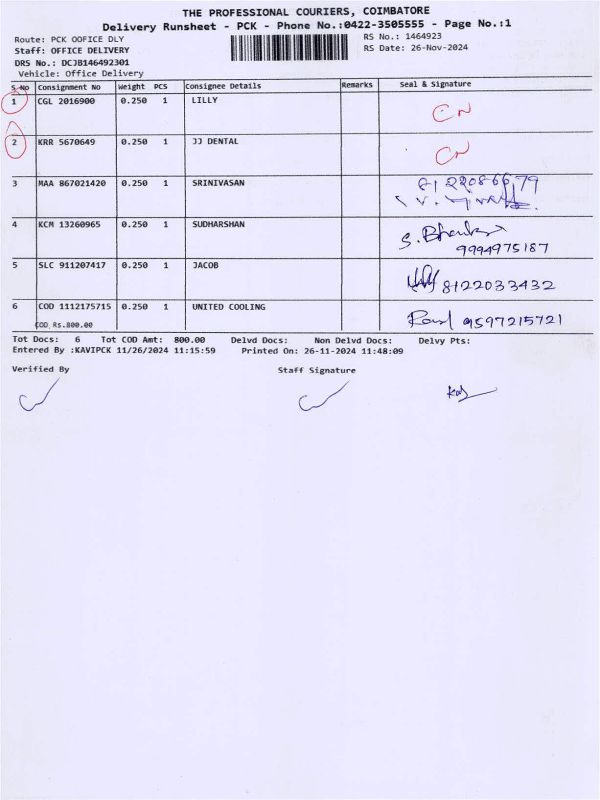 THE PROFESSIONAL COURIERS, COIMBATORE
Delivery Runsheet - PCK - Phone No.:0422-3505555 - Page No.:1
Route: PCK OOFICE DLY
RS No.: 1464923
Staff: OFFICE DELIVERY
RS Date: 26-Nov-2024
DRS No.: DCJB146492301
Vehicle: Office Delivery
S.No Consignment No Weight PCS Consignee Details Remarks Seal & Signature
1 CGL 2016900 0.250 1 LILLY
2 KRR 5670649 0.250 1 JJ DENTAL
3 MAA 867021420 0.250 1 SRINIVASAN
4 KCM 13260965 0.250 1 SUDHARSHAN S. Bhaskar
9994975187
5 SLC 911207417 0.250 1 JACOB 8122033432
6 COD 1112175715 0.250 1 UNITED COOLING 9597215721
COD Rs.800.00
Tot Docs: 6 Tot COD Amt: 800.00 Delvd Docs: Non Delvd Docs: Delvy Pts:
Entered By :KAVIPCK 11/26/2024 11:15:59 Printed On: 26-11-2024 11:48:09
Verified By Staff Signature